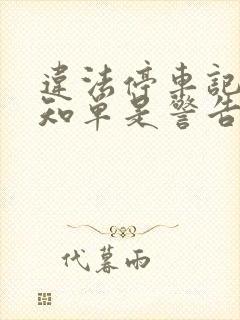 違法停車記
知單是警告
代暮雨